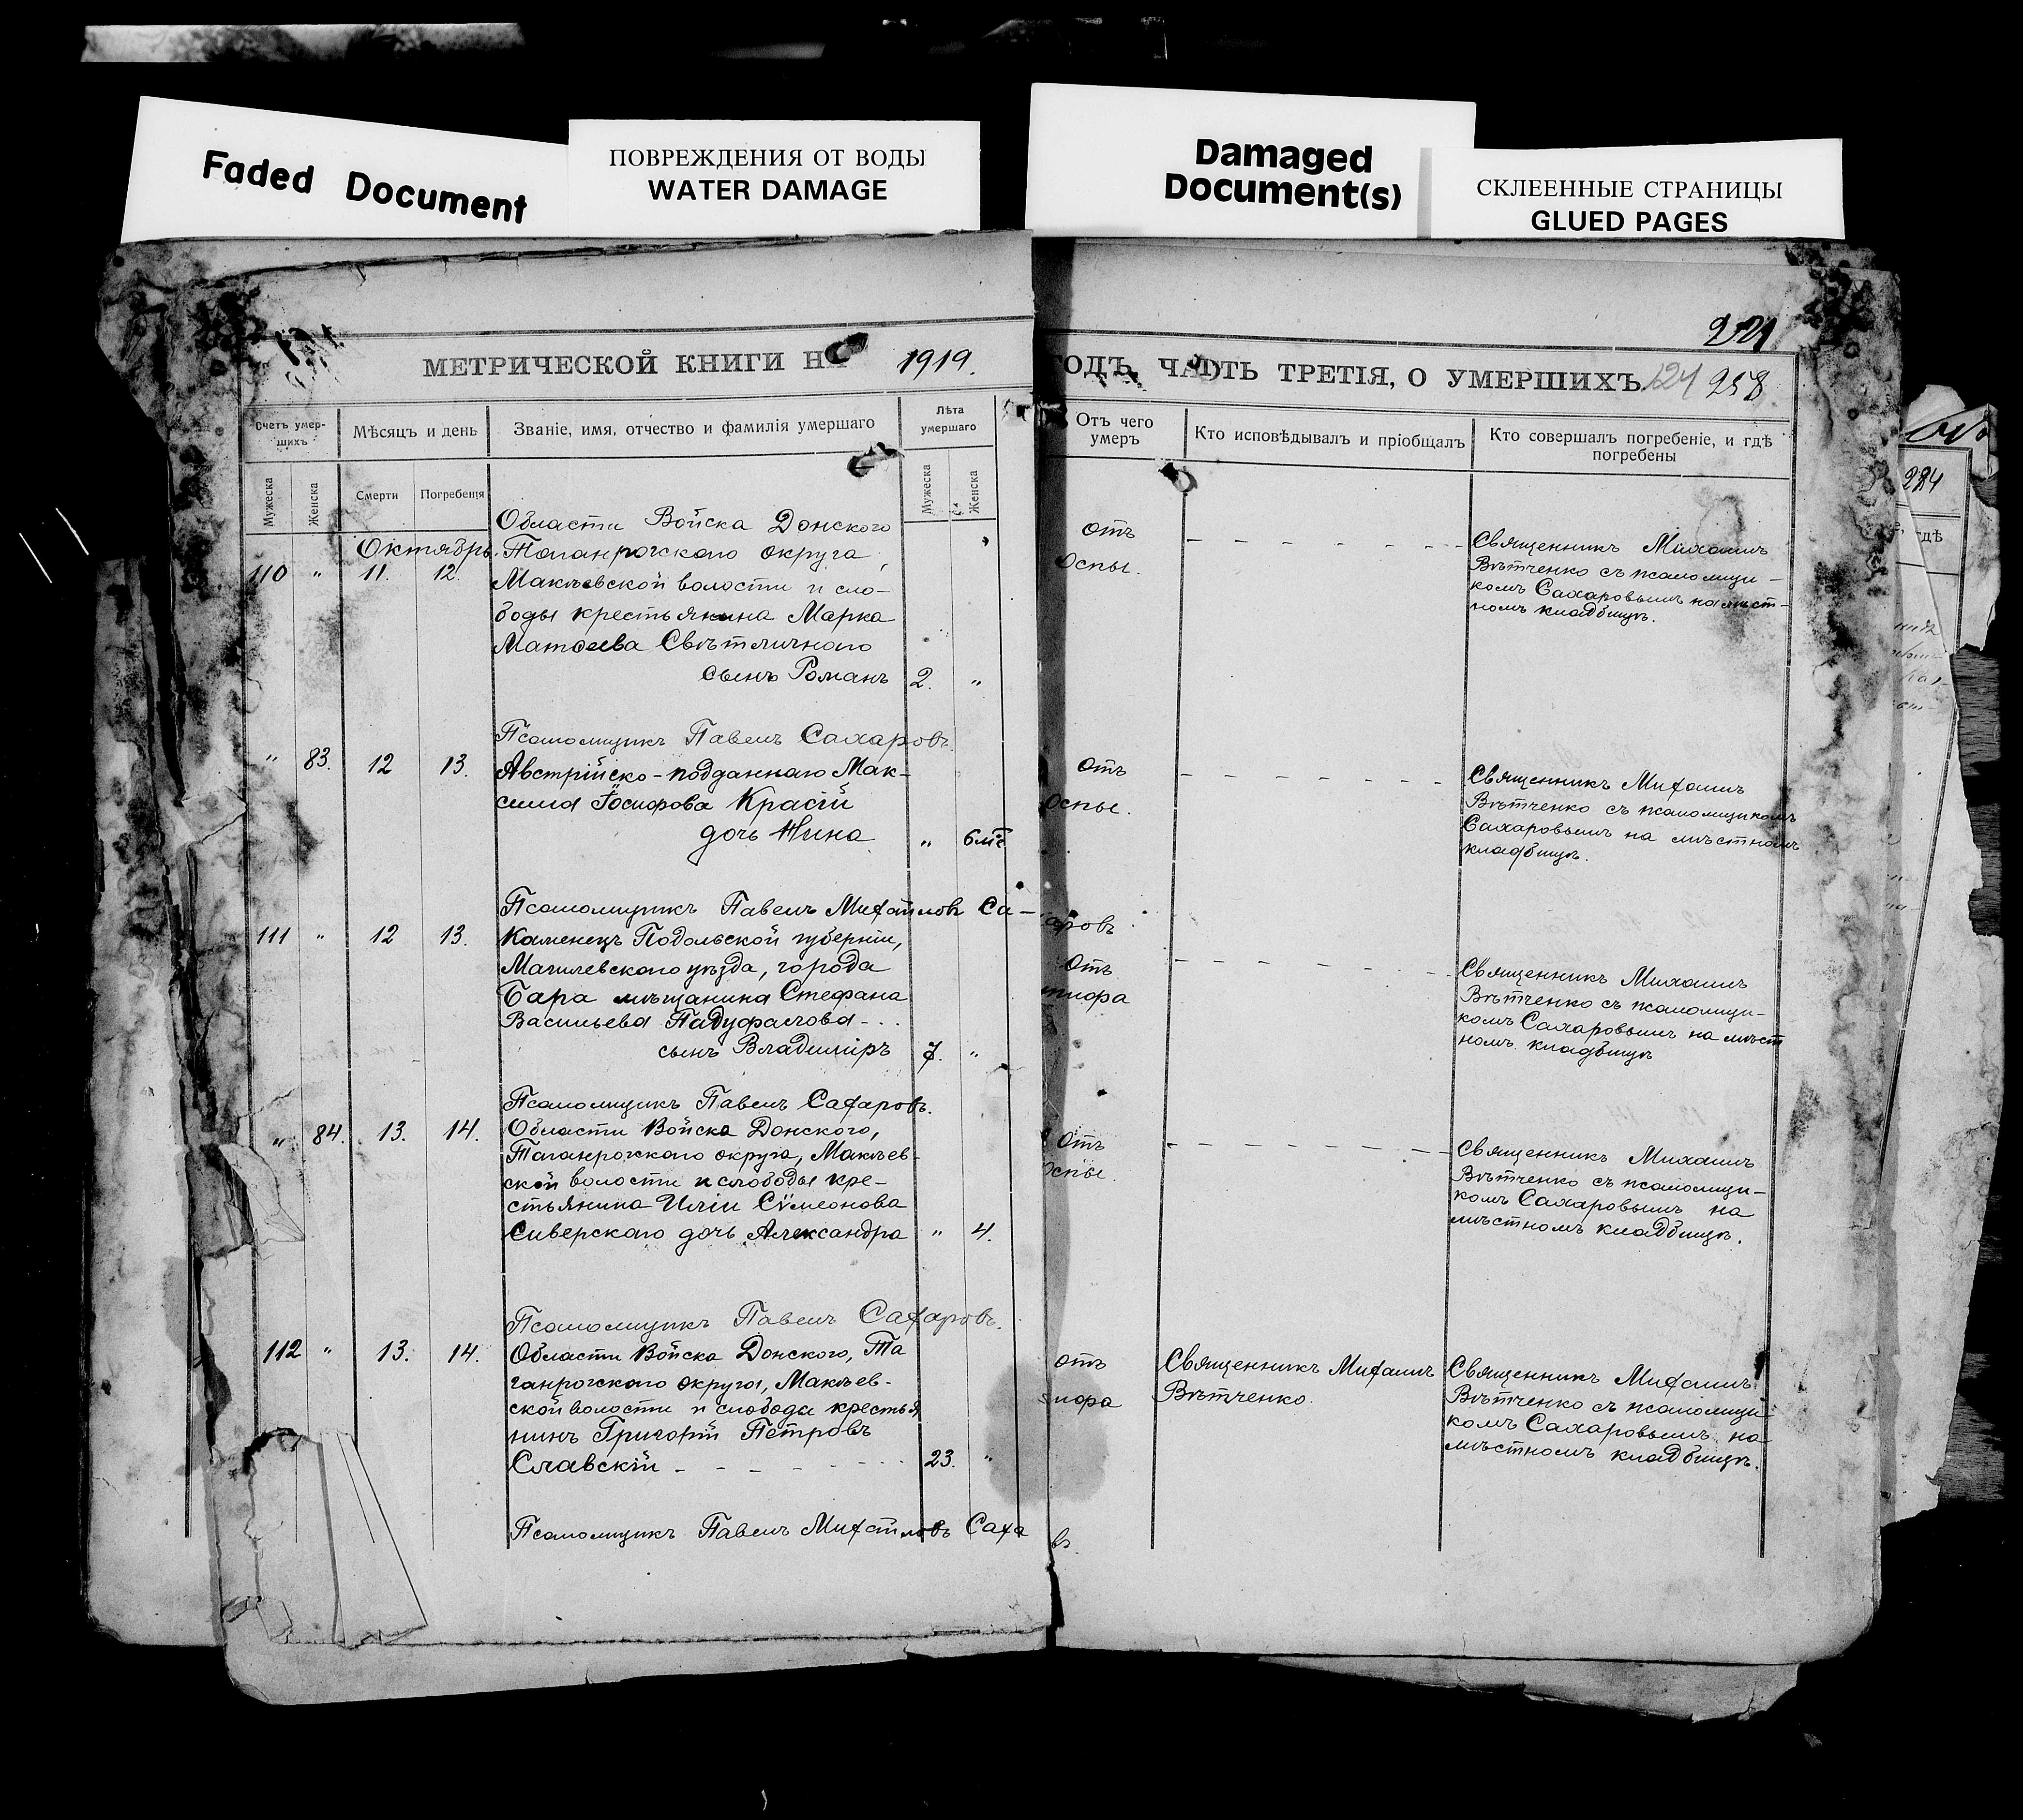 Faded Document
ПОВРЕЖДЕНИЯ ОТ ВОДЫ
WATER DAMAGE
Damaged
Document(s)
СКЛЕЕННЫЕ СТРАНИЦЫ
GLUED PAGES
МЕТРИЧЕСКОЙ КНИГИ НА 1919.
Счетъ умер-
шихъ
Мѣсяцъ и день
Званіе, имя, отчество и фамилія умершаго
Лѣта
умершаго
Мужеска
Женска
Смерти
Погребенія
Мужеска
Женска
Области Войска Донского
Октябрь. Таганрогскаго округа,
110 " 11. 12. Макѣевской волости и сло-
боды крестьянина Марка
Матѳеева Свѣтличнаго
сынъ Романъ 2. "
Псаломщикъ Павелъ Сахаровъ.
" 83. 12 13. Австрійско-подданнаго Мак-
сима Іосифова Красій
дочь Нина " 6 мѣс
Псаломщикъ Павелъ Михайловъ Са-
111 " 12 13. Каменецъ Подольской губерніи,
Магилевскаго уѣзда, города
Бара мѣщанина Стефана
Васильева
сынъ Владиміръ 7. "
Псаломщикъ Павелъ Сахаровъ.
" 84. 13. 14. Области Войска Донского,
Таганрогскаго округа, Макѣев-
ской волости и слободы кре-
стьянина Иліи Сѵмеонова
Сиверскаго дочь Александра " 4.
Псаломщикъ Павелъ Сахаровъ.
112 " 13. 14. Области Войска Донского, Та
ганрогскаго округа, Макѣев-
ской волости и слободы крестья
нинъ Григорій Петровъ
Славскій - - - - - - 23. "
Псаломщикъ Павелъ Михайловъ Саха
221
ОДЪ, ЧАСТЬ ТРЕТІЯ, О УМЕРШИХЪ. 258
Отъ чего
умеръ
Кто исповѣдывалъ и пріобщалъ
Кто совершалъ погребеніе, и гдѣ
погребены
отъ
Оспы.
Священникъ Михаилъ
Вѣтченко съ псаломщи-
комъ Сахаровымъ на мѣст-
номъ кладбищѣ.
отъ
Оспы.
Священникъ Михаилъ
Вѣтченко съ псаломщикомъ
Сахаровымъ на мѣстномъ
кладбищѣ.
аровъ
отъ
тифа
Священникъ Михаилъ
Вѣтченко съ псаломщи-
комъ Сахаровымъ на мѣст
номъ кладбищѣ
отъ
Оспы.
Священникъ Михаилъ
Вѣтченко съ псаломщи-
комъ Сахаровымъ на
мѣстномъ кладбищѣ.
отъ
тифа
Священникъ Михаилъ
Вѣтченко.
Священникъ Михаилъ
Вѣтченко съ псаломщи
комъ Сахаровымъ на
мѣстномъ кладбищѣ.
въ.
284
гдѣ